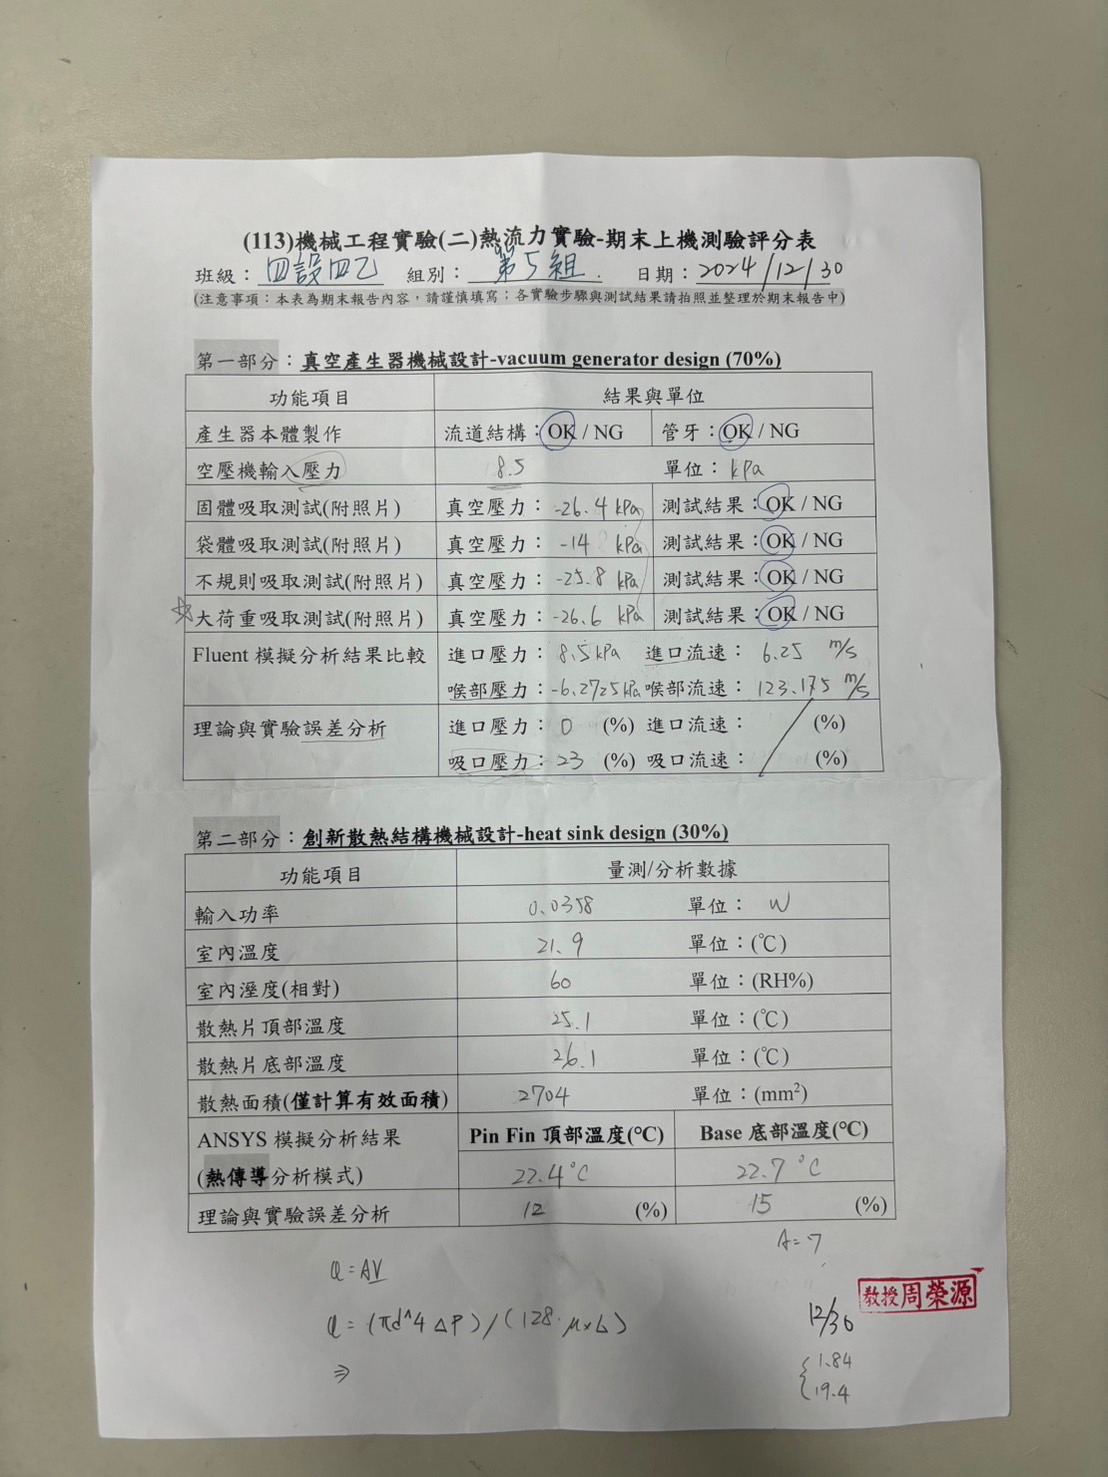 (113)機械工程實驗(二)熱流力實驗-期末上機測驗評分表
班級：四設四乙 組別：第5組. 日期：2024/12/30
(注意事項：本表為期末報告內容，請謹慎填寫；各實驗步驟與測試結果請拍照並整理於期末報告中)
第一部分：真空產生器機械設計-vacuum generator design (70%)
功能項目 結果與單位
產生器本體製作 流道結構：OK / NG 管牙：OK / NG
空壓機輸入壓力 8.5 單位：kPa
固體吸取測試(附照片) 真空壓力：-26.4 kPa 測試結果：OK / NG
袋體吸取測試(附照片) 真空壓力：-14 kPa 測試結果：OK / NG
不規則吸取測試(附照片) 真空壓力：-25.8 kPa 測試結果：OK / NG
☆大荷重吸取測試(附照片) 真空壓力：-26.6 kPa 測試結果：OK / NG
Fluent 模擬分析結果比較 進口壓力：8.5kPa 進口流速：6.25 m/s
喉部壓力：-6.2725kPa 喉部流速：123.175 m/s
理論與實驗誤差分析 進口壓力：0 (%) 進口流速： (%)
吸口壓力：23 (%) 吸口流速： (%)
第二部分：創新散熱結構機械設計-heat sink design (30%)
功能項目 量測/分析數據
輸入功率 0.0358 單位： W
室內溫度 21.9 單位：(℃)
室內溼度(相對) 60 單位：(RH%)
散熱片頂部溫度 25.1 單位：(℃)
散熱片底部溫度 26.1 單位：(℃)
散熱面積(僅計算有效面積) 2704 單位：(mm²)
ANSYS 模擬分析結果 Pin Fin 頂部溫度(℃) Base 底部溫度(℃)
(熱傳導分析模式) 22.4°C 22.7°C
理論與實驗誤差分析 12 (%) 15 (%)
A=7
Q=AV
教授周榮源
Q=(πd^4 ΔP)/(128·μ×L)
12/30
⇒
{1.84
19.4